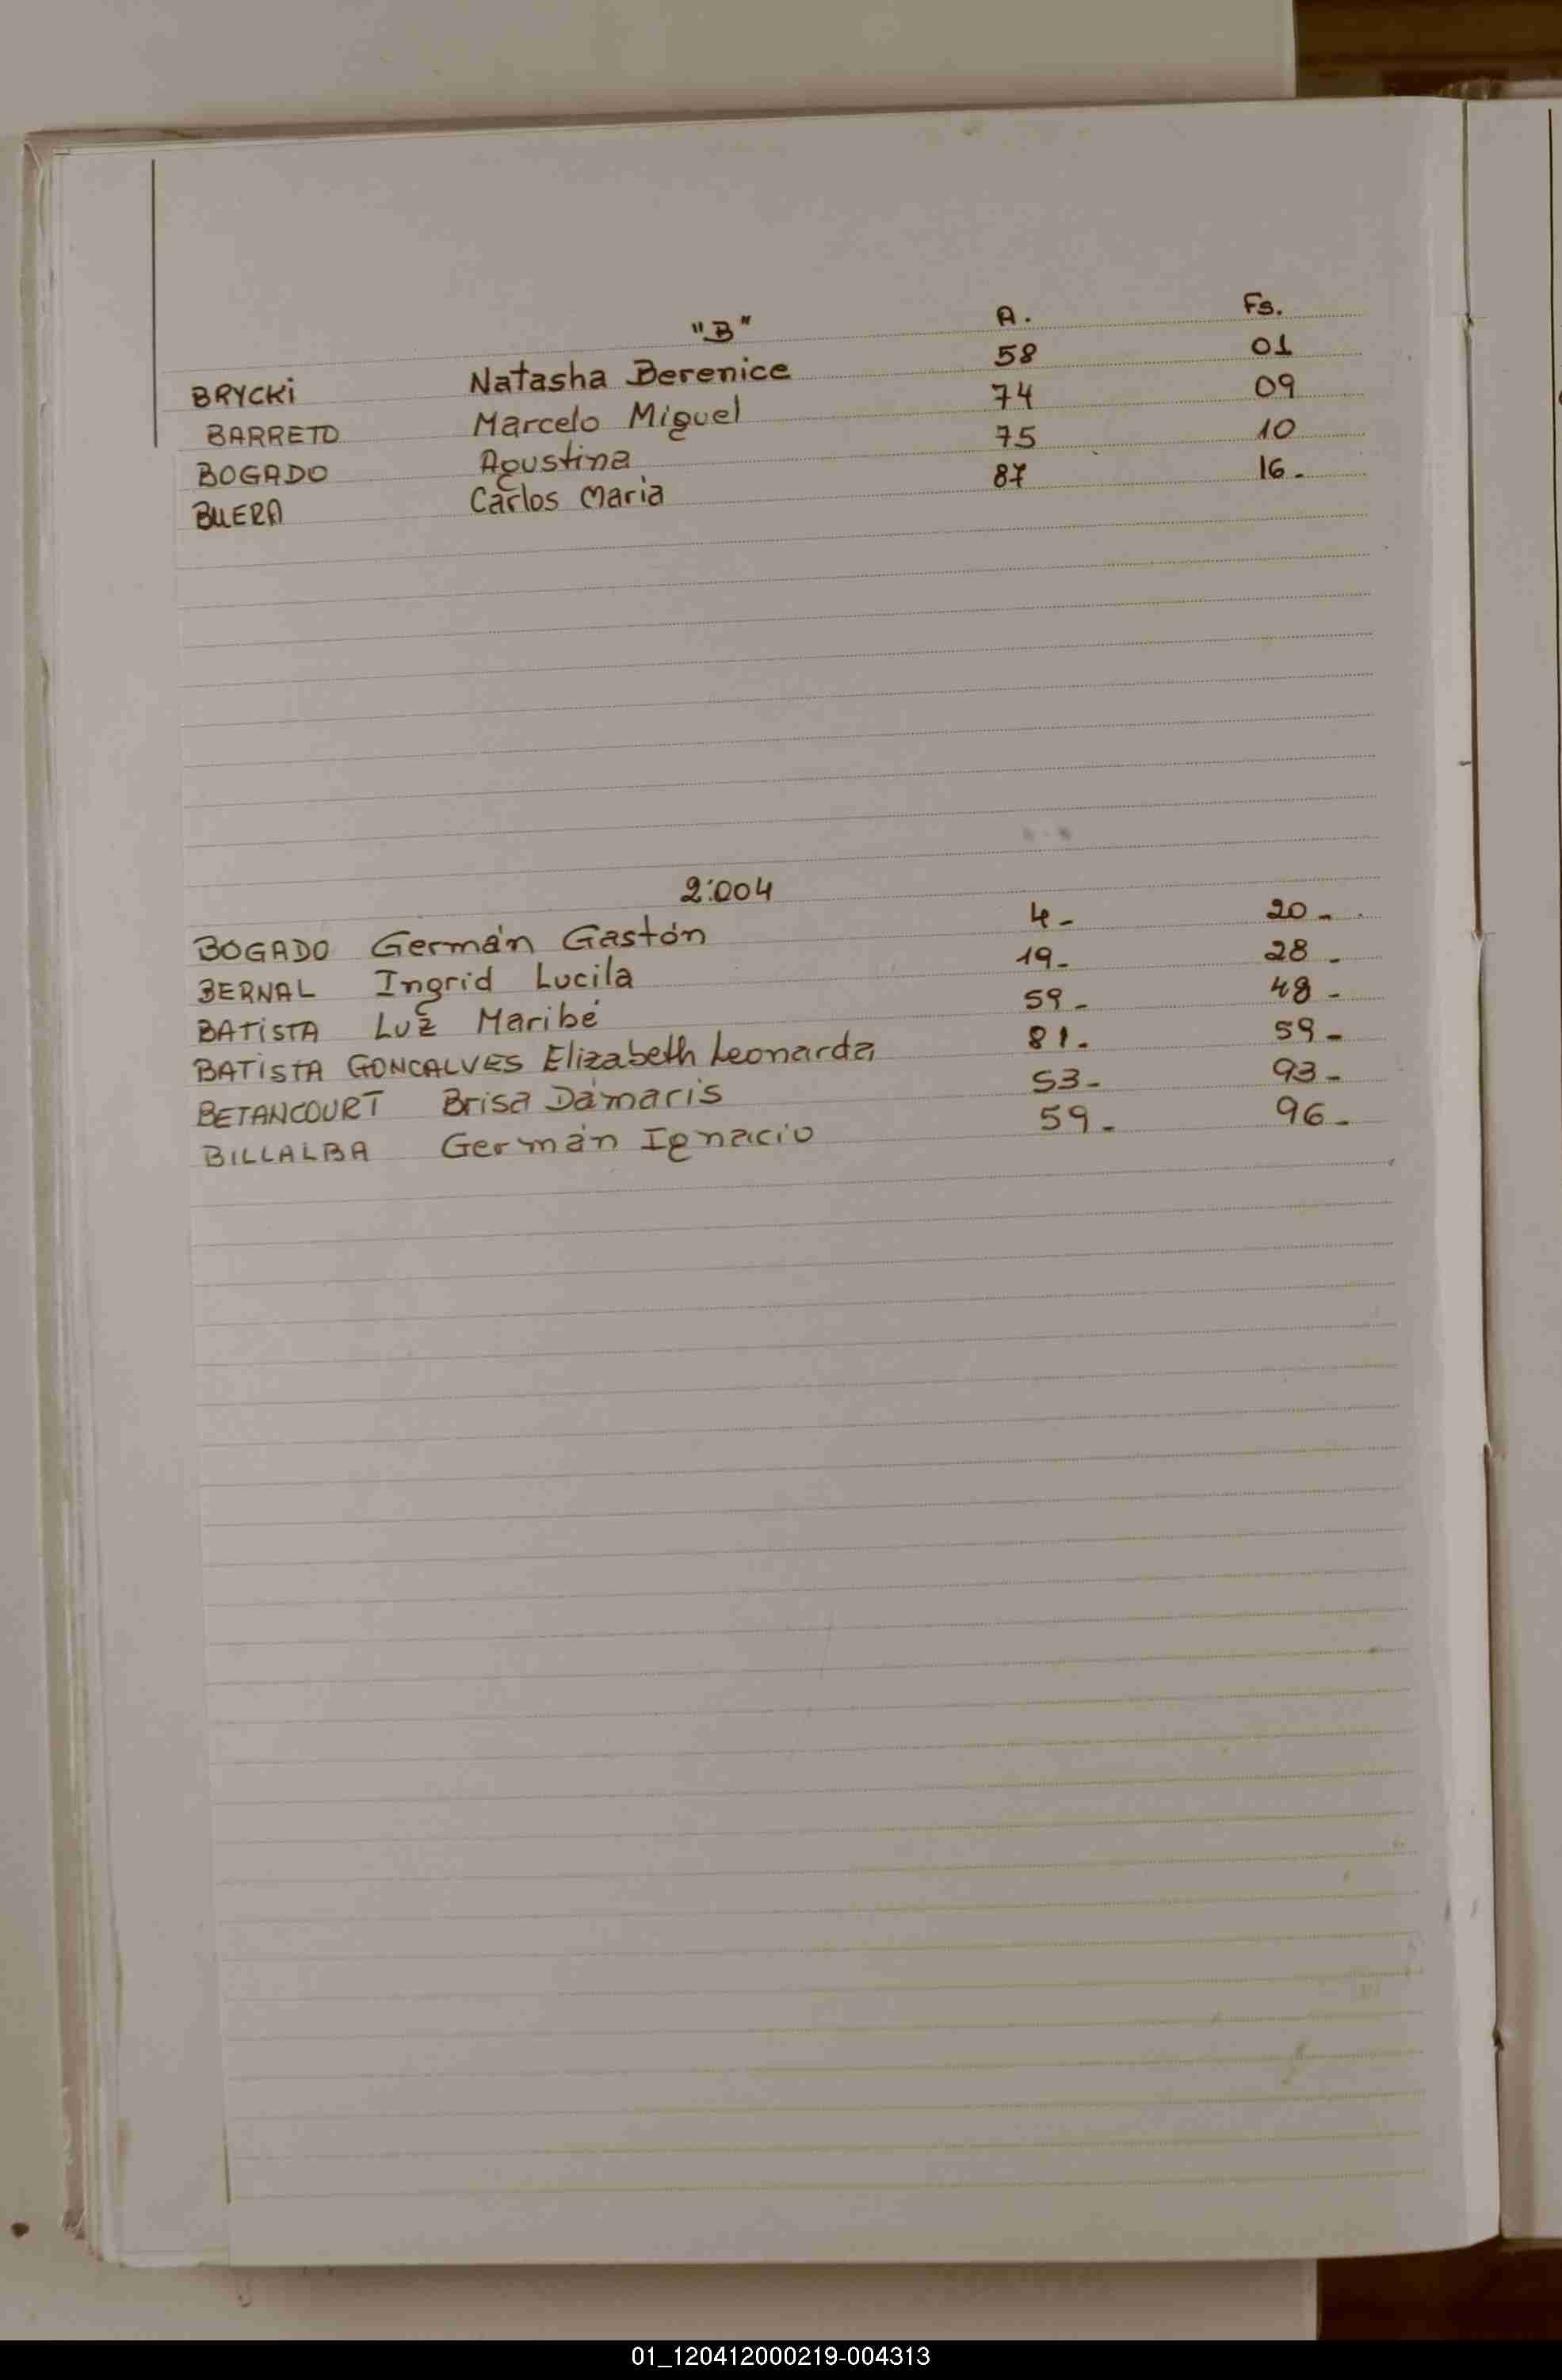 "B" A. Fs.
BRYCKi Natasha Berenice 58 01
BARRETO Marcelo Miguel 74 09
BOGADO Agustina 75 10
BUERA Carlos Maria 87 16-
2.004
BOGADO Germán Gastón 4- 20-
BERNAL Ingrid Lucila 19- 28-
BATiSTA Luz Maribé 59- 48-
BATiSTA GONCALVES Elizabeth Leonarda 81- 59-
BETANCOURT Brisa Dámaris 53- 93-
BILLALBA Germán Ignacio 59- 96-
01_120412000219-004313